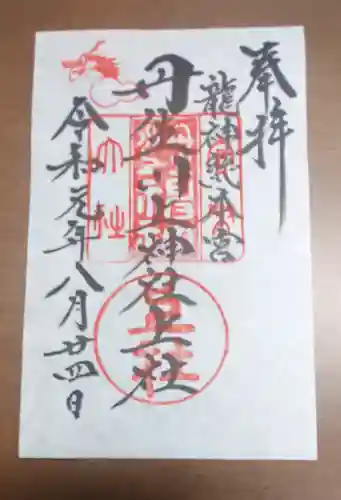 奉拝
龍神総本宮
丹生川上神社上社
令和元年八月廿四日
大社
上社